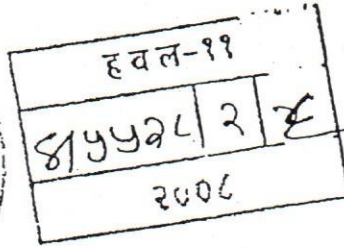 हवल-११
५५२८ २
२००८